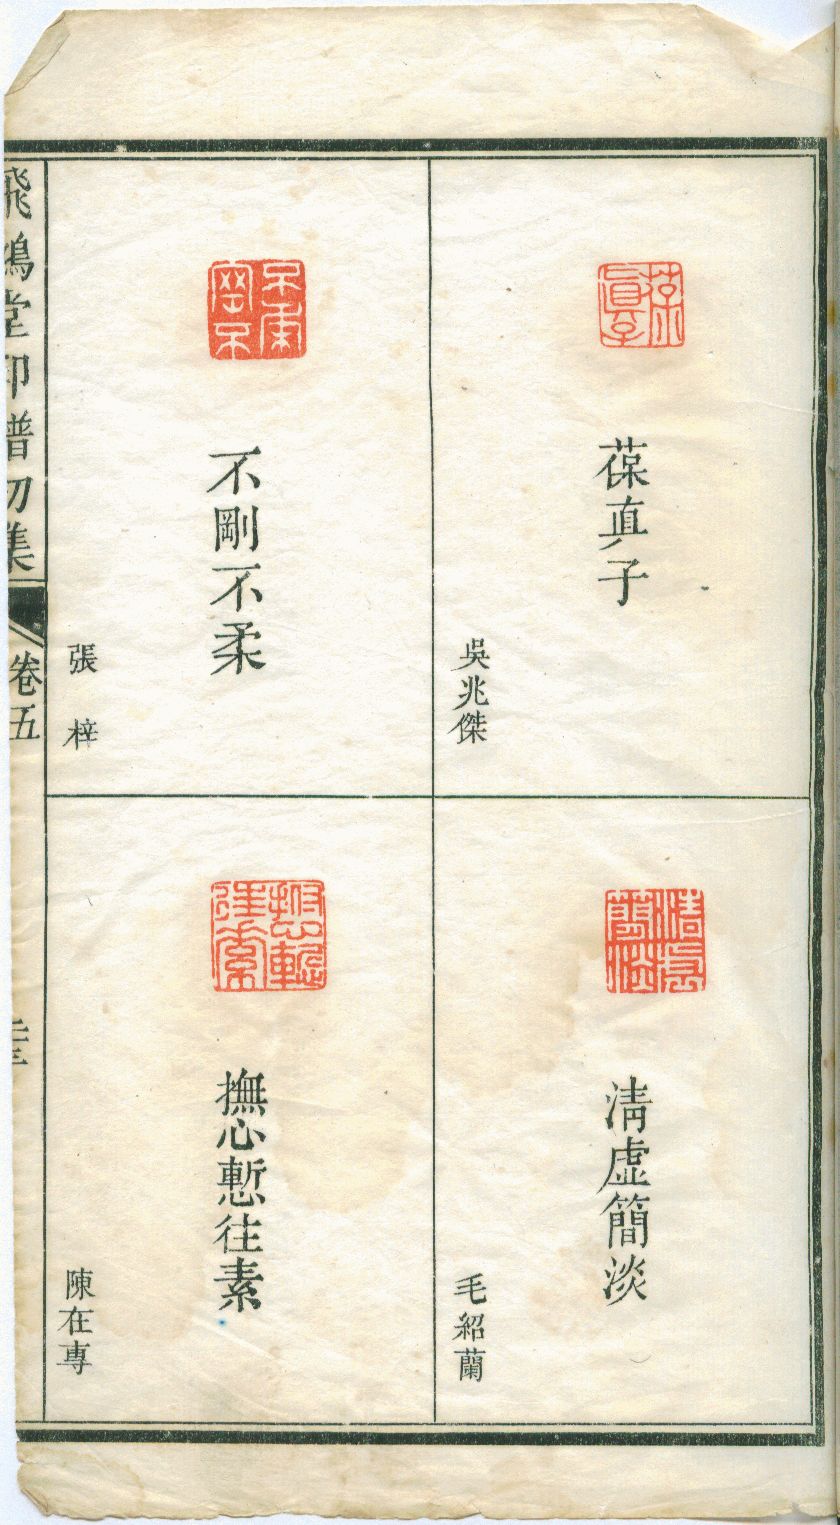 葆真子
吳兆傑
清虛簡淡
毛紹蘭
不剛不柔
張梓
撫心慙往素
陳在專
飛鴻堂印譜初集
卷五